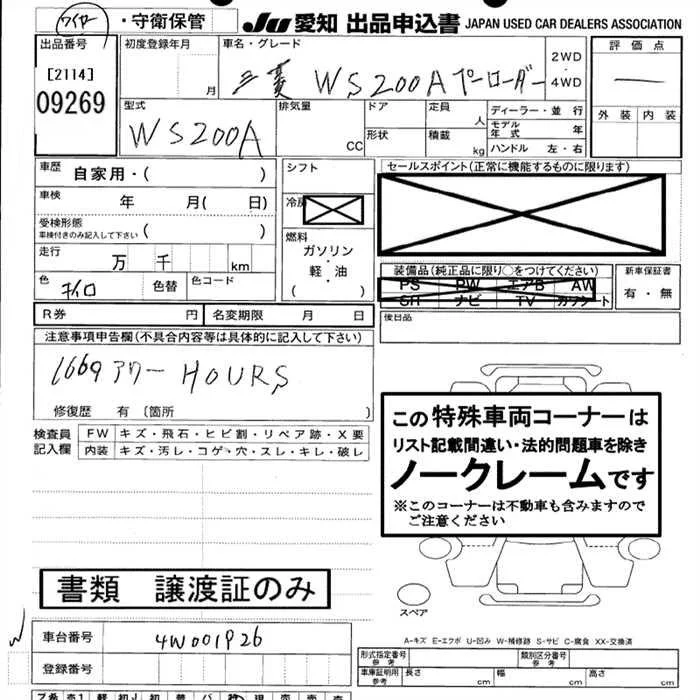 ワイヤー ・守衛保管 JU 愛知 出品申込書 JAPAN USED CAR DEALERS ASSOCIATION
出品番号 初度登録年月 車名・グレード 2WD ・ 4WD 評価点
[2114] 月 三菱 WS200A ペーローダー
09269 型式 排気量 ドア 定員 ディーラー・並行 外装 内装
WS200A CC 形状 積載 人 kg モデル年式 年 ハンドル 左・右
車歴 自家用・( ) シフト セールスポイント(正常に機能するものに限ります)
車検 年 月( 日) 冷房
受検形態 車検付きのみ記入して下さい ( ) 燃料 ガソリン・軽・油
走行 万 千 km 装備品(純正品に限り○をつけてください) 新車保証書
色 キイロ 色替 色コード ( ) PS PW エアB AW 有・無
SR ナビ TV カワシート
R券 円 名変期限 月 日 後日品
注意事項申告欄(不具合内容等は具体的に記入して下さい)
1669 アワー HOURS
修復歴 有 〔箇所 )
検査員記入欄 FW キズ・飛石・ヒビ割・リペア跡・X要
内装 キズ・汚レ・コゲ・穴・スレ・キレ・破レ
この特殊車両コーナーは
リスト記載間違い・法的問題車を除き
ノークレームです
※このコーナーは不動車も含みますので
ご注意ください
書類 譲渡証のみ
スペア
A-キズ E-エクボ U-凹み W-補修跡 S-サビ C-腐食 XX-交換済
車台番号 4W001926
登録番号
形式指定番号 参考 類別区分番号 参考
車庫証明用 参考 長さ cm 幅 cm 高さ cm